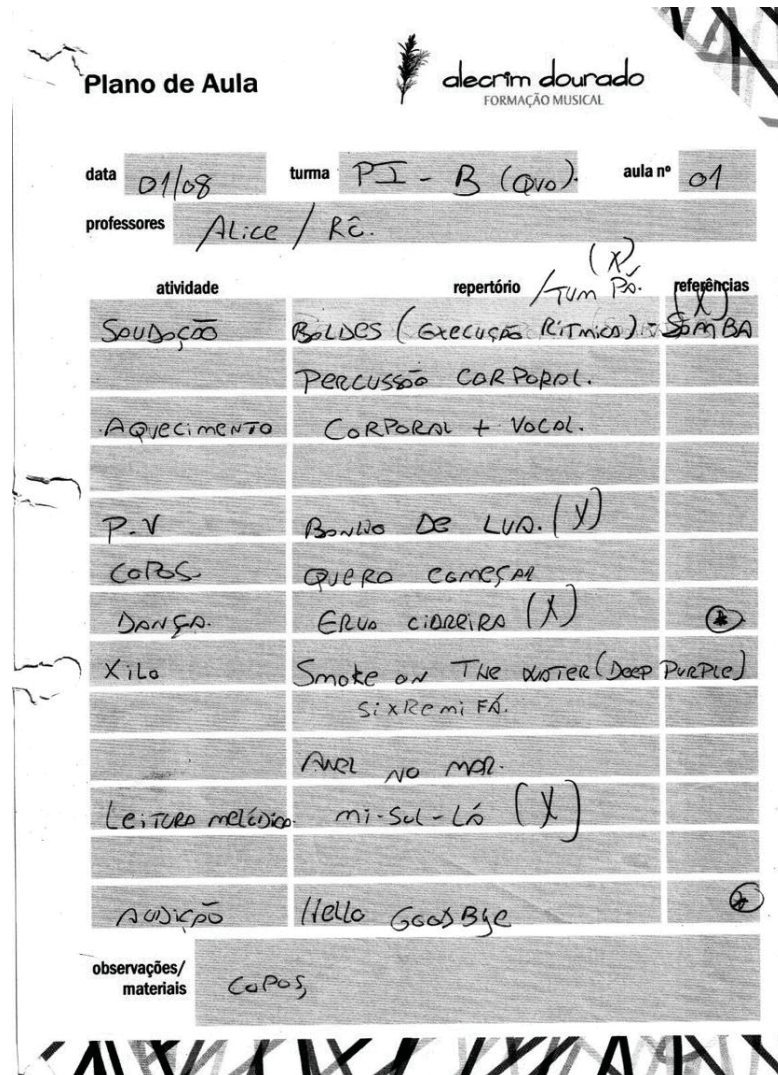 Plano de Aula
alecrim dourado
FORMAÇÃO MUSICAL
data 01/08 turma PI - B (Qua). aula nº 01
professores Alice / Rê.
(X)
atividade repertório /Tum Pá. referências
(X)
Saudação Baldes (Execução Rítmica) - Samba
Percussão Corporal.
Aquecimento Corporal + Vocal.
P.V Banho de Lua. (X)
Copos Quero começar
Dança. Erva cidreira (X)
Xilo Smoke on The water (Deep Purple)
Si x Re mi Fá.
Anel no mar.
Leitura melódica. mi-Sol-Lá (X)
Audição Hello GoodBye
observações/
materiais Copos,